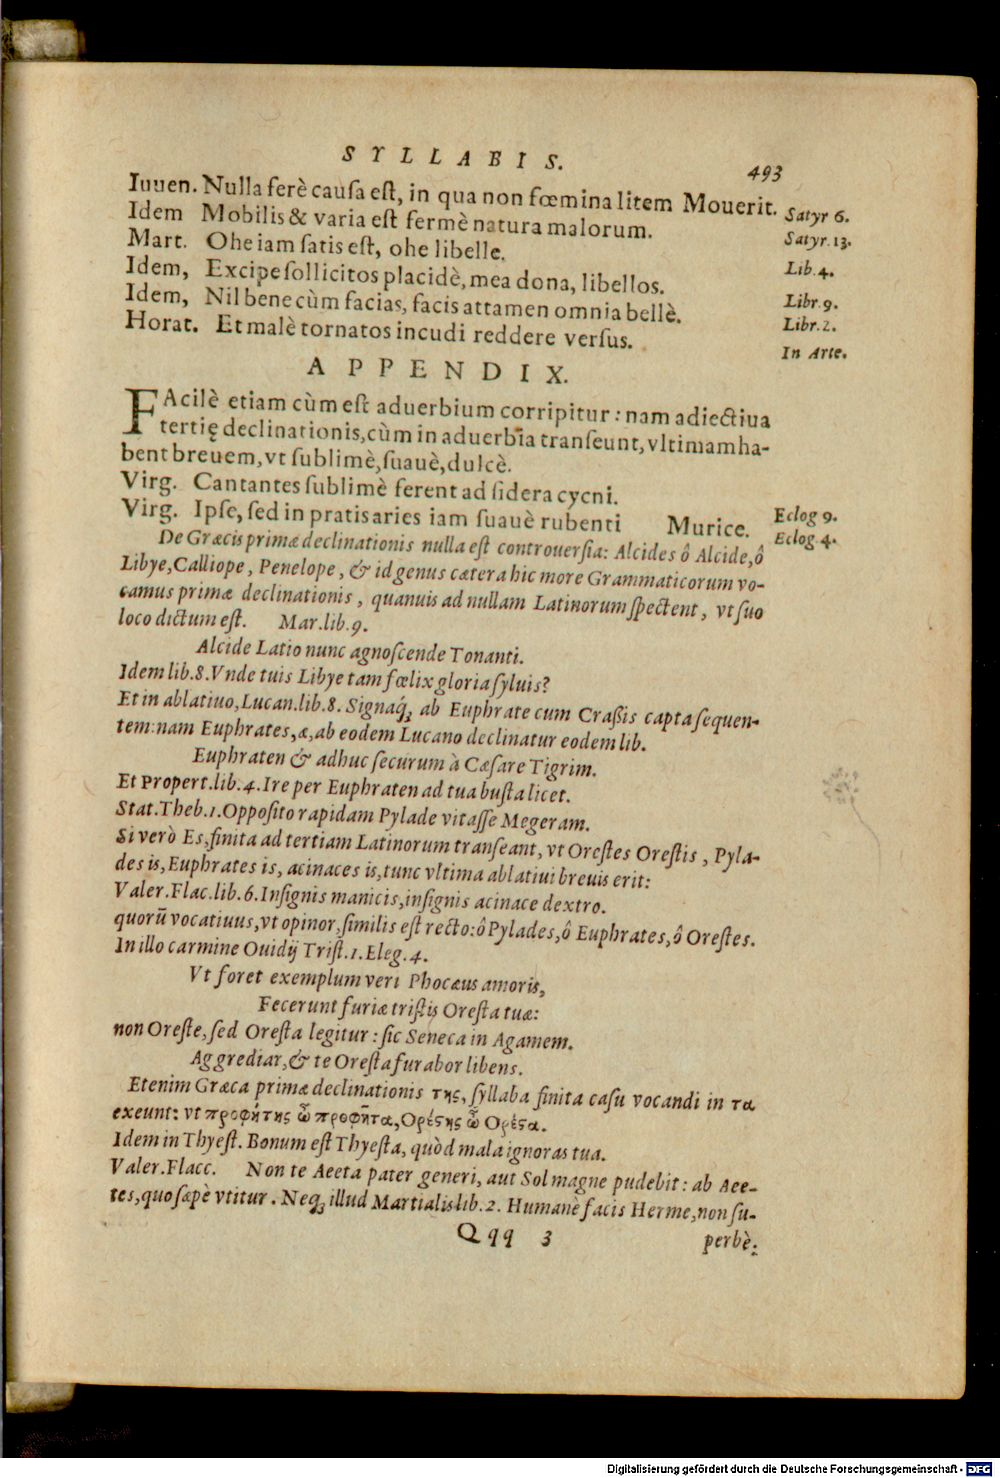 SYLLABIS. 493
Iuuen. Nulla ferè cauſa eſt, in qua non fœmina litem Mouerit. Satyr 6.
Idem Mobilis & varia eſt fermè natura malorum. Satyr. 13.
Mart. Ohe iam ſatis eſt, ohe libelle. Lib. 4.
Idem, Excipe ſollicitos placidè, mea dona, libellos. Libr. 9.
Idem, Nil bene cùm facias, facis attamen omnia bellè. Libr. 2.
Horat. Et malè tornatos incudi reddere verſus. In Arte.
APPENDIX.
FAcilè etiam cùm eſt aduerbium corripitur: nam adiectiua
tertię declinationis, cùm in aduerbia tranſeunt, vltimam ha-
bent breuem, vt ſublimè, ſuauè, dulcè.
Virg. Cantantes ſublimè ferent ad ſidera cycni. Eclog 9.
Virg. Ipſe, ſed in pratis aries iam ſuauè rubenti Murice. Eclog 4.
De Græcis primæ declinationis nulla eſt controuerſia: Alcides ô Alcide, ô
Libye, Calliope, Penelope, & id genus cætera hic more Grammaticorum vo-
camus primæ declinationis, quanuis ad nullam Latinorum ſpectent, vt ſuo
loco dictum eſt. Mar. lib. 9.
Alcide Latio nunc agnoſcende Tonanti.
Idem lib. 8. Vnde tuis Libye tam fœlix gloria ſyluis?
Et in ablatiuo, Lucan. lib. 8. Signaq́; ab Euphrate cum Craßis capta ſequen-
tem: nam Euphrates, æ, ab eodem Lucano declinatur eodem lib.
Euphraten & adhuc ſecurum à Cæſare Tigrim.
Et Propert. lib. 4. Ire per Euphraten ad tua buſta licet.
Stat. Theb. 1. Oppoſito rapidam Pylade vitaſſe Megeram.
Si verò Es, finita ad tertiam Latinorum tranſeant, vt Oreſtes Oreſtis, Pyla-
des is, Euphrates is, acinaces is, tunc vltima ablatiui breuis erit:
Valer. Flac. lib. 6. Inſignis manicis, inſignis acinace dextro.
quorũ vocatiuus, vt opinor, ſimilis eſt recto: ô Pylades, ô Euphrates, ô Oreſtes.
In illo carmine Ouidij Triſt. 1. Eleg. 4.
Vt foret exemplum veri Phocæus amoris,
Fecerunt furiæ triſtis Oreſta tuæ:
non Oreſte, ſed Oreſta legitur: ſic Seneca in Agamem.
Aggrediar, & te Oreſta furabor libens.
Etenim Græca primæ declinationis της, ſyllaba finita caſu vocandi in τα
exeunt: vt προφήτης ὦ προφῆτα, Ορέϛης ὦ Ορέϛα.
Idem in Thyeſt. Bonum eſt Thyeſta, quòd mala ignoras tua.
Valer. Flacc. Non te Aeeta pater generi, aut Sol magne pudebit: ab Aee-
tes, quo ſæpè vtitur. Neq; illud Martialis lib. 2. Humanè facis Herme, non ſu-
Qqq 3 perbè:
Digitalisierung gefördert durch die Deutsche Forschungsgemeinschaft - DFG